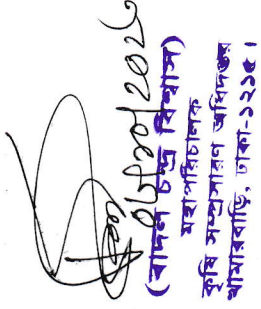 ০৮/১০/২০২৬
(বাদল চন্দ্র বিশ্বাস)
মহাপরিচালক
কৃষি সম্প্রসারণ অধিদপ্তর
খামারবাড়ি, ঢাকা-১২১৫।